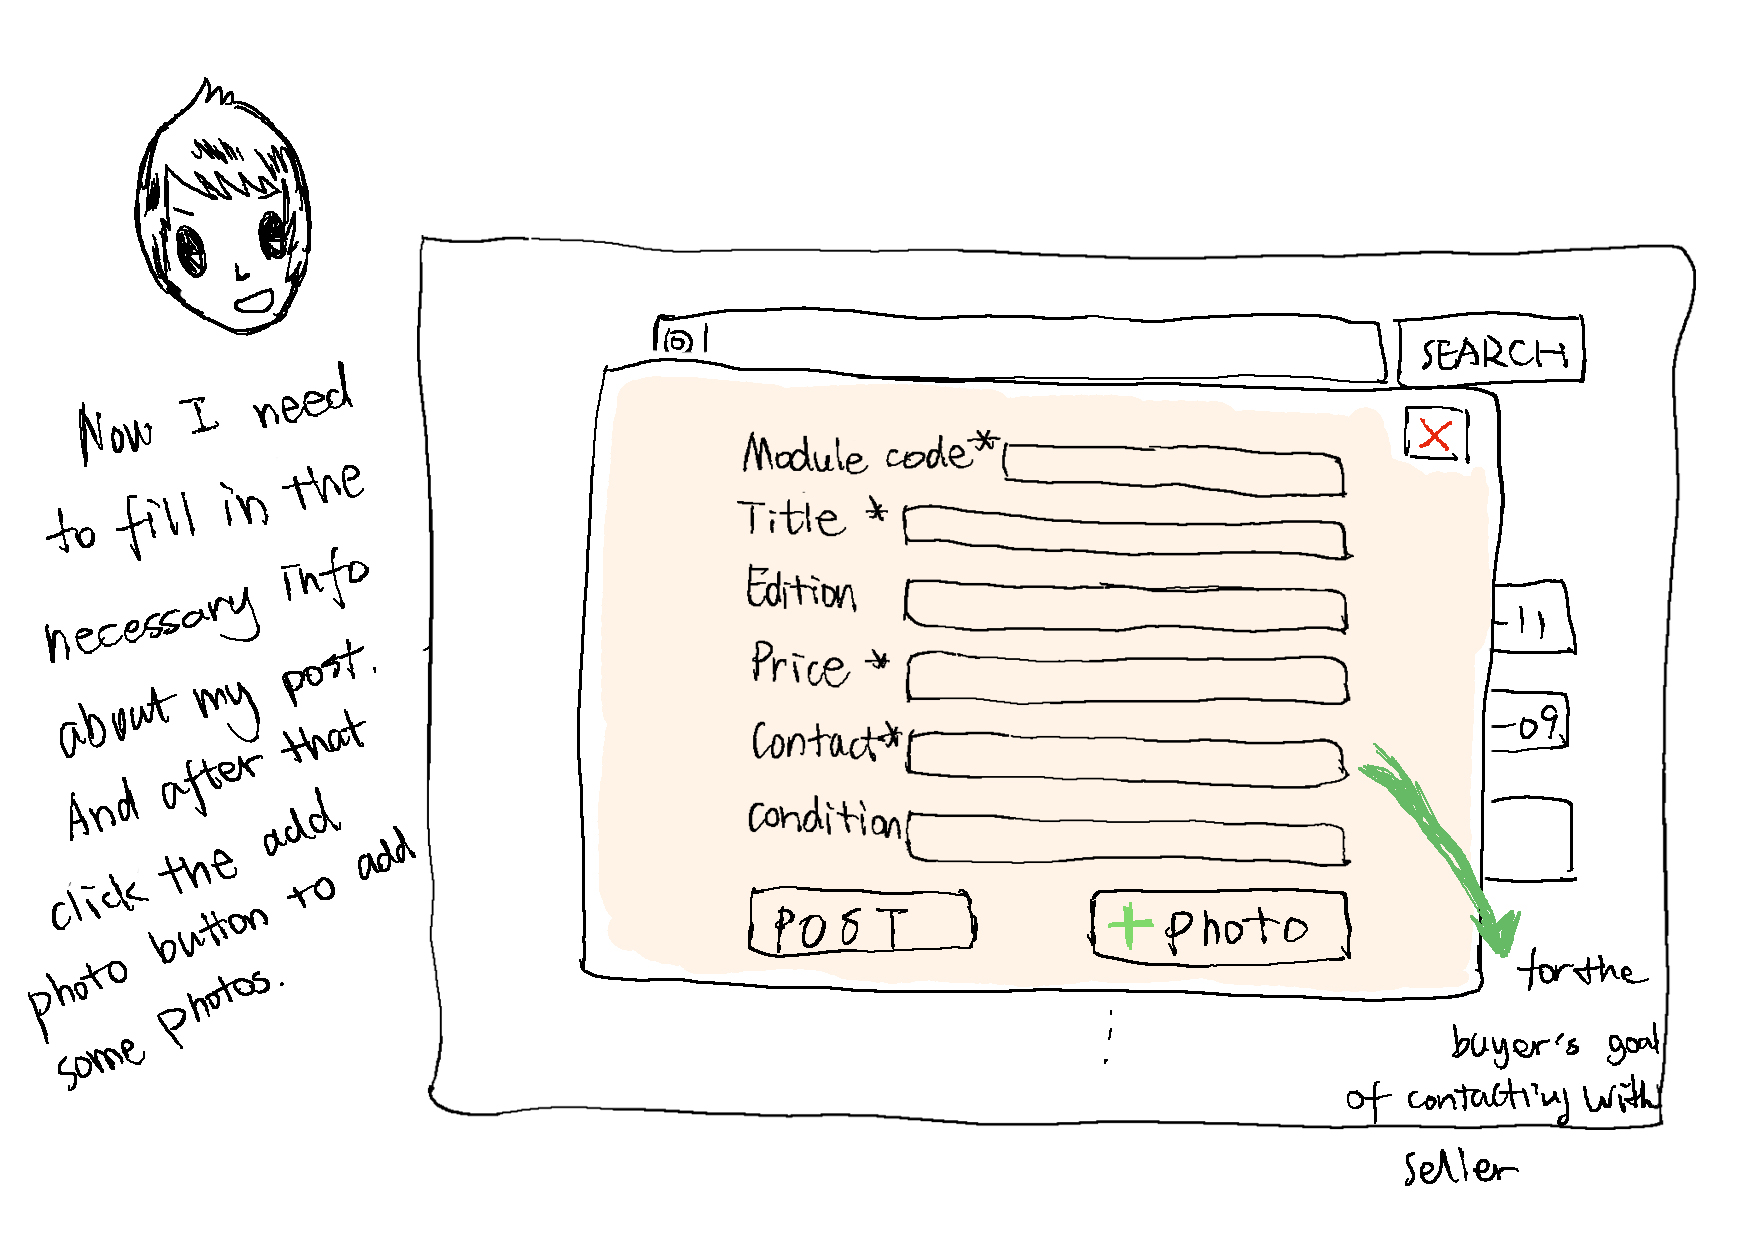 Now I need
to fill in the
necessary info
about my post.
And after that
click the add
photo button to add
some photos.
SEARCH
X
Module code*
Title *
Edition
Price *
Contact*
condition
POST
+ photo
-11
-09
for the
buyer's goal
of contacting with
seller